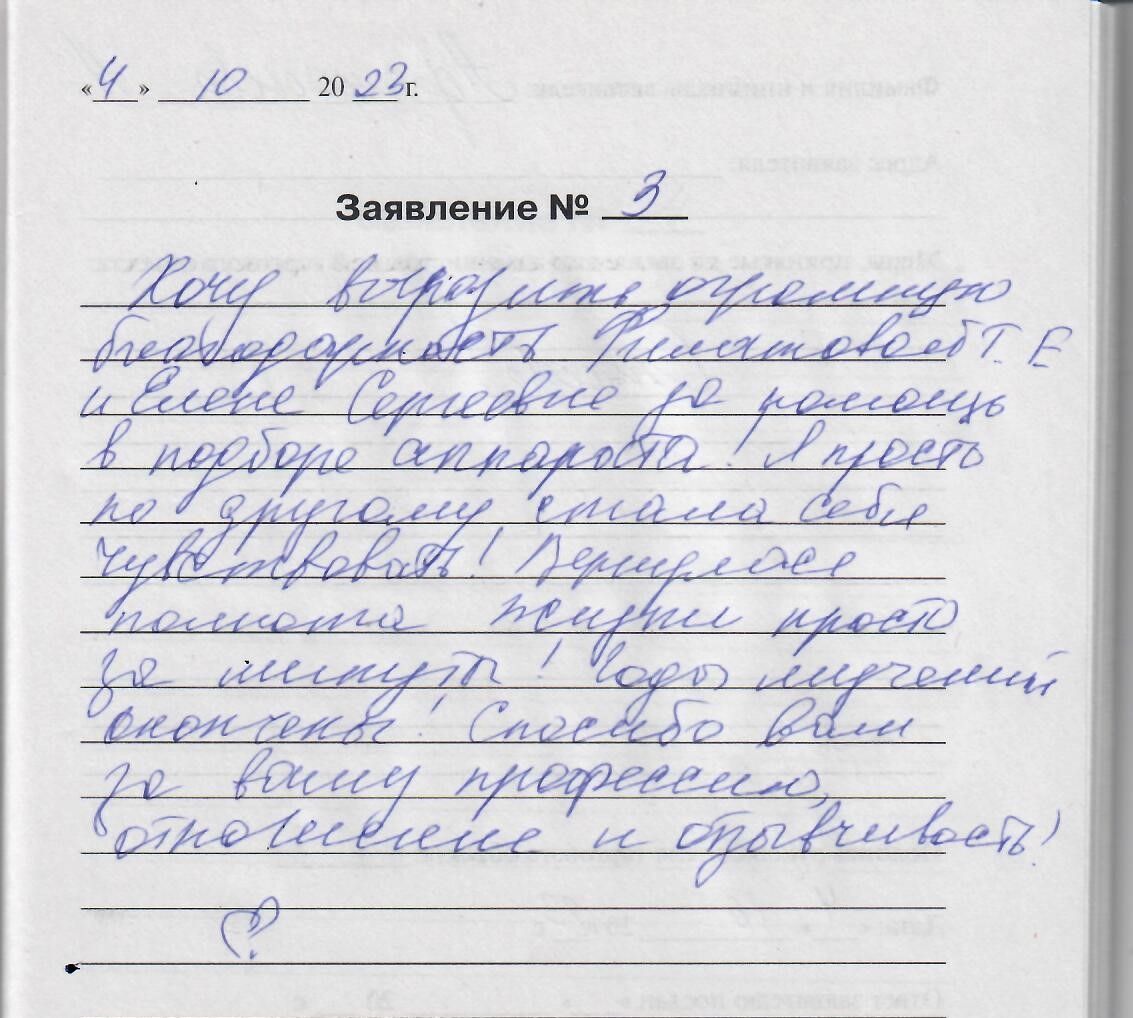 «4» 10 2023 г.
Заявление № 3
Хочу выразить огромную
благодарность Филатовой Т. Е
и Елене Сергеевне за помощь
в подборе аппарата! Я прость
по другому стала себя
чувствовать! Вернулася
полнота жизни просто
за минуты! Годы мучений
окончены! Спасибо вам
за вашу профессию,
отношение и отзывчивость!